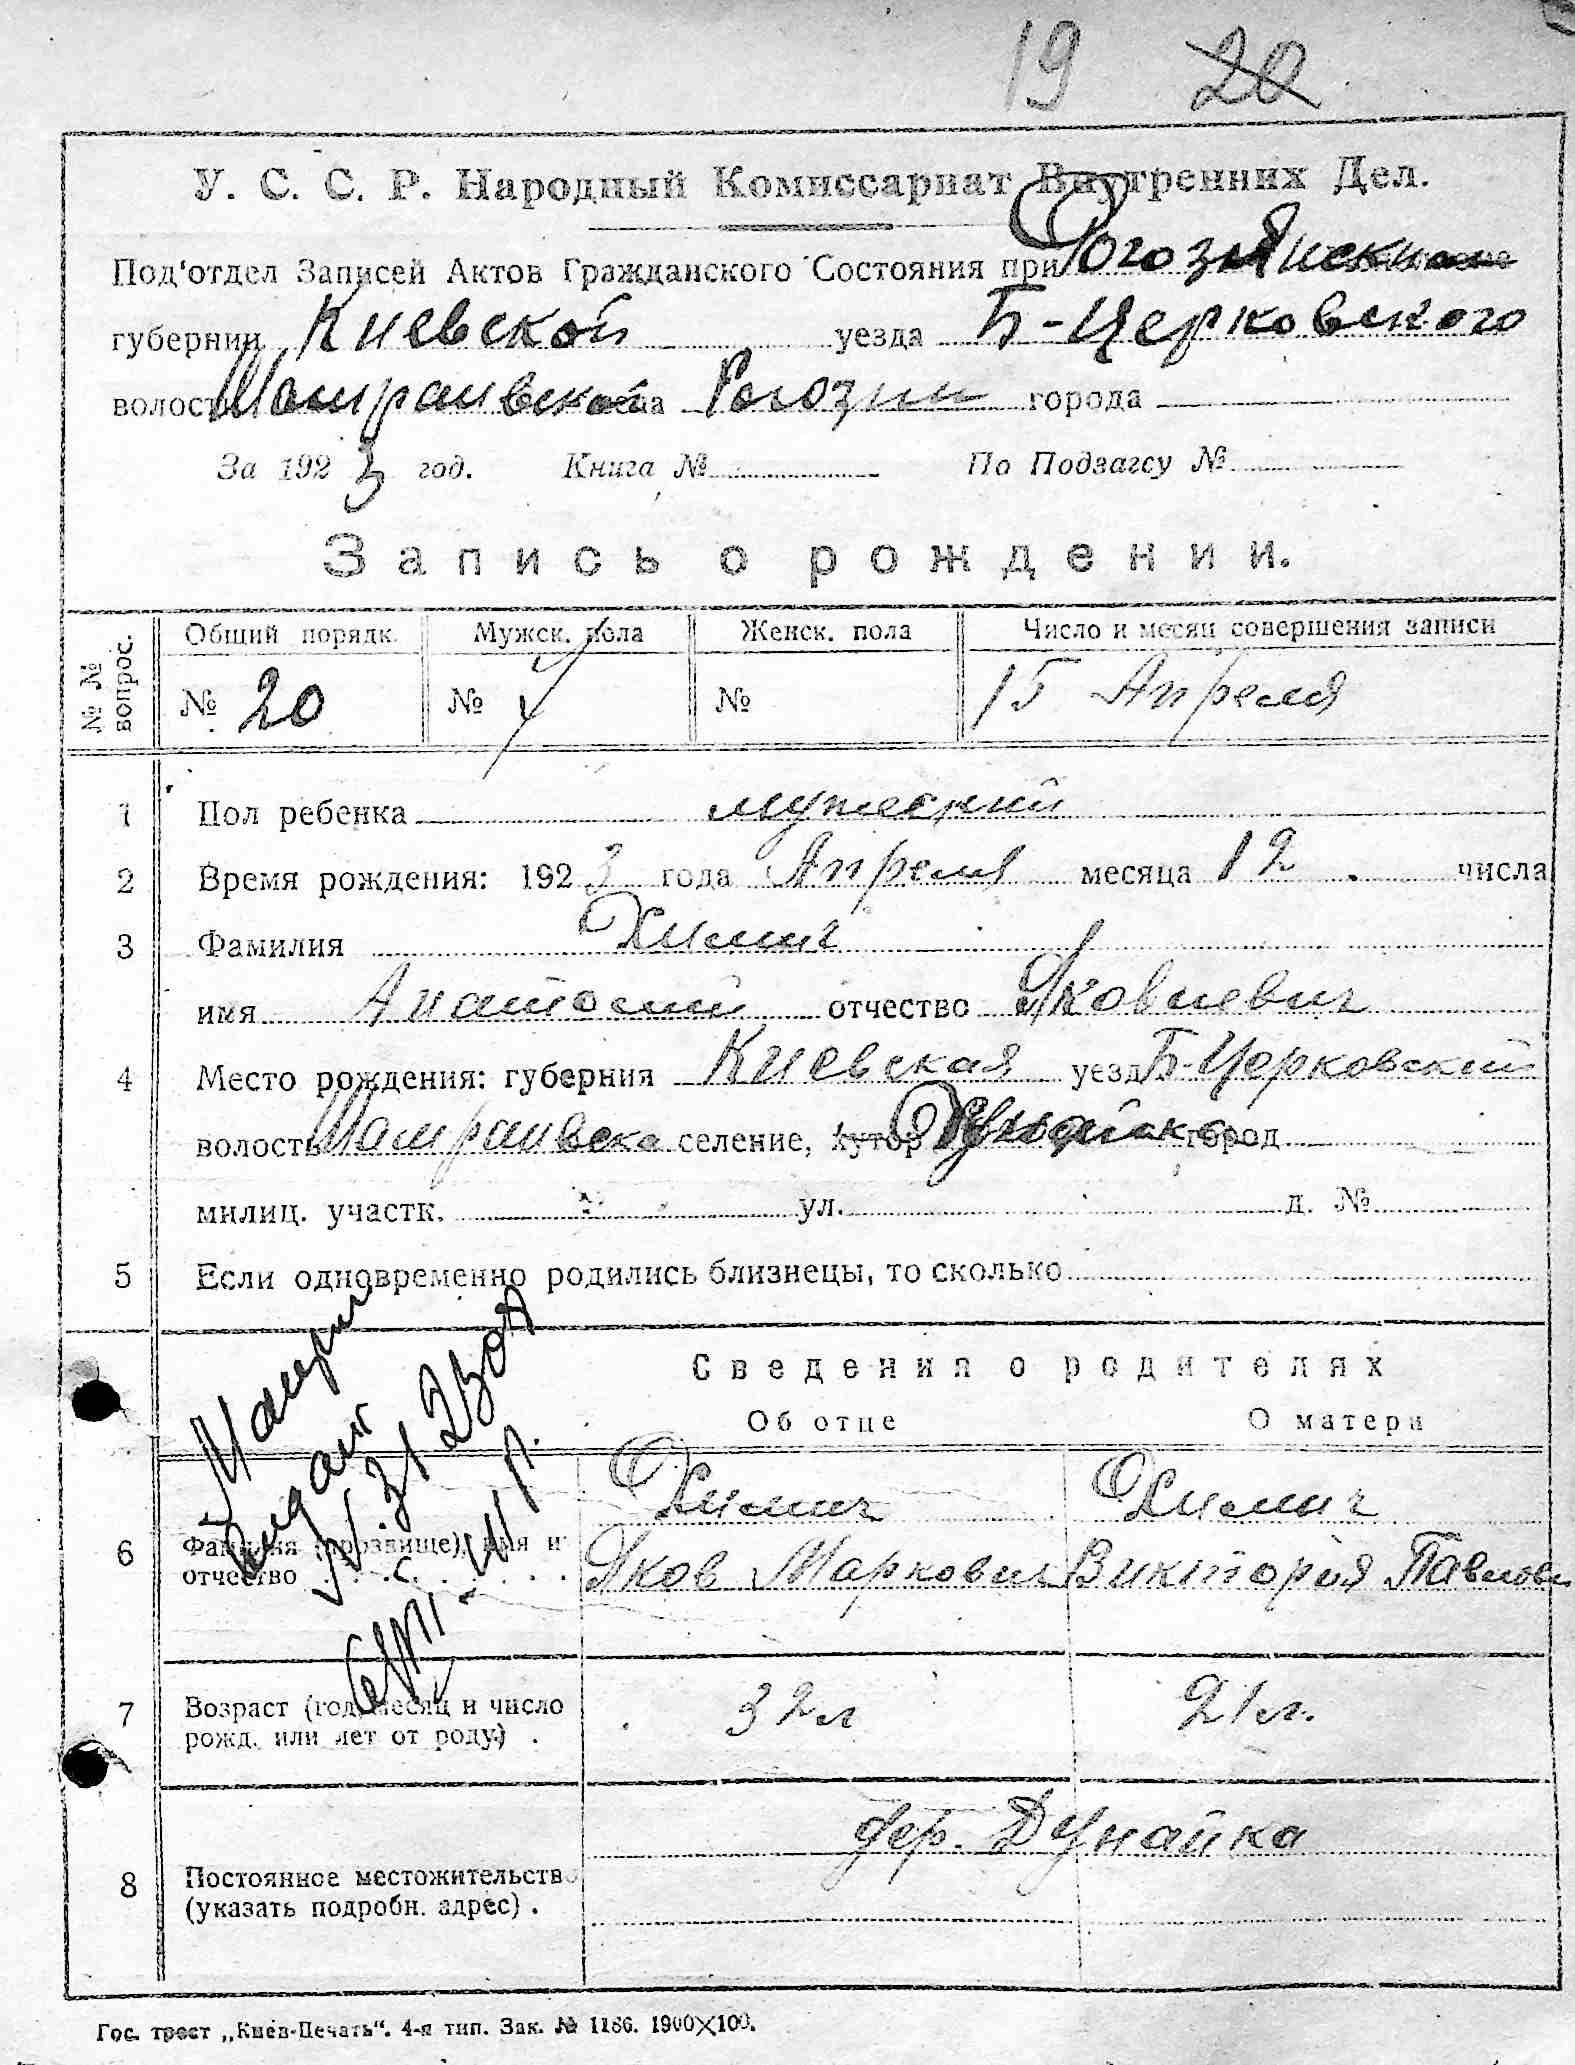 19 20
У. С. С. Р. Народный Комиссариат Внутренних Дел.
Под'отдел Записей Актов Гражданского Состояния при Рогозянском
губернии Киевской уезда Б-Церковского
волости села Рогозин города
За 1923 год. Книга № По Подзагсу №
Запись о рождении.
№ № вопрос. Общий порядк. Мужск. пола Женск. пола Число и месяц совершения записи
№ 20 № № 15 Апреля
1 Пол ребенка мужеский
2 Время рождения: 1923 года Апреля месяца 12 числа
3 Фамилия Химич
имя Анатолий отчество Яковлевич
4 Место рождения: губерния Киевская уезд Б-Церковский
волость селение, хутор город
милиц. участк. ул. д. №
5 Если одновременно родились близнецы, то сколько
Сведения о родителях
Об отце О матери
Химич Химич
6 Фамилия (прозвище), имя и Яков Маркович Виктория Павлов
отчество
7 Возраст (год, месяц и число 32 л 21 л.
рожд. или лет от роду)
дер. Дунайка
8 Постоянное местожительств
(указать подробн. адрес) .
Гос. трест „Киев-Печать“. 4-я тип. Зак. № 1186. 1900×100.